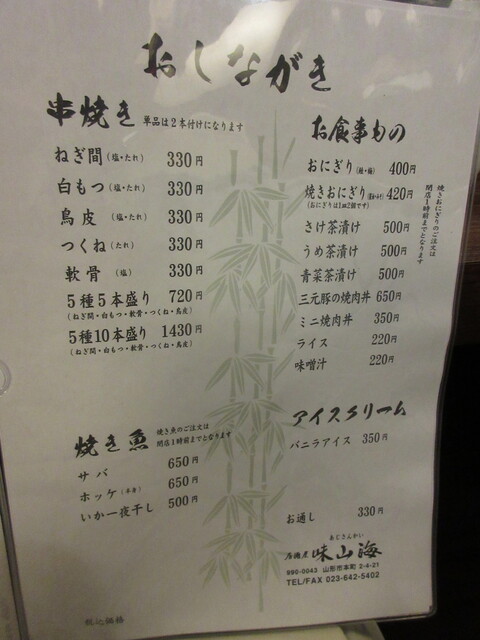 おしながき
串焼き 単品は2本付けになります
ねぎ間(塩・たれ) 330円
白もつ(塩・たれ) 330円
鳥皮 (塩・たれ) 330円
つくね(たれ) 330円
軟骨 (塩) 330円
5種5本盛り 720円
(ねぎ間・白もつ・軟骨・つくね・鳥皮)
5種10本盛り 1430円
(ねぎ間・白もつ・軟骨・つくね・鳥皮)
焼き魚 焼き魚のご注文は
閉店1時前までとなります
サバ 650円
ホッケ(半身) 650円
いか一夜干し 500円
税込価格
お食事もの
おにぎり 400円
焼きおにぎり 420円
(おにぎりは1皿2個です)
焼きおにぎりのご注文は
閉店1時前までとなります
さけ茶漬け 500円
うめ茶漬け 500円
青菜茶漬け 500円
三元豚の焼肉丼 650円
ミニ焼肉丼 350円
ライス 220円
味噌汁 220円
アイスクリーム
バニラアイス 350円
お通し 330円
あじさんかい
居酒屋 味山海
990-0043 山形市本町 2-4-21
TEL/FAX 023-642-5402